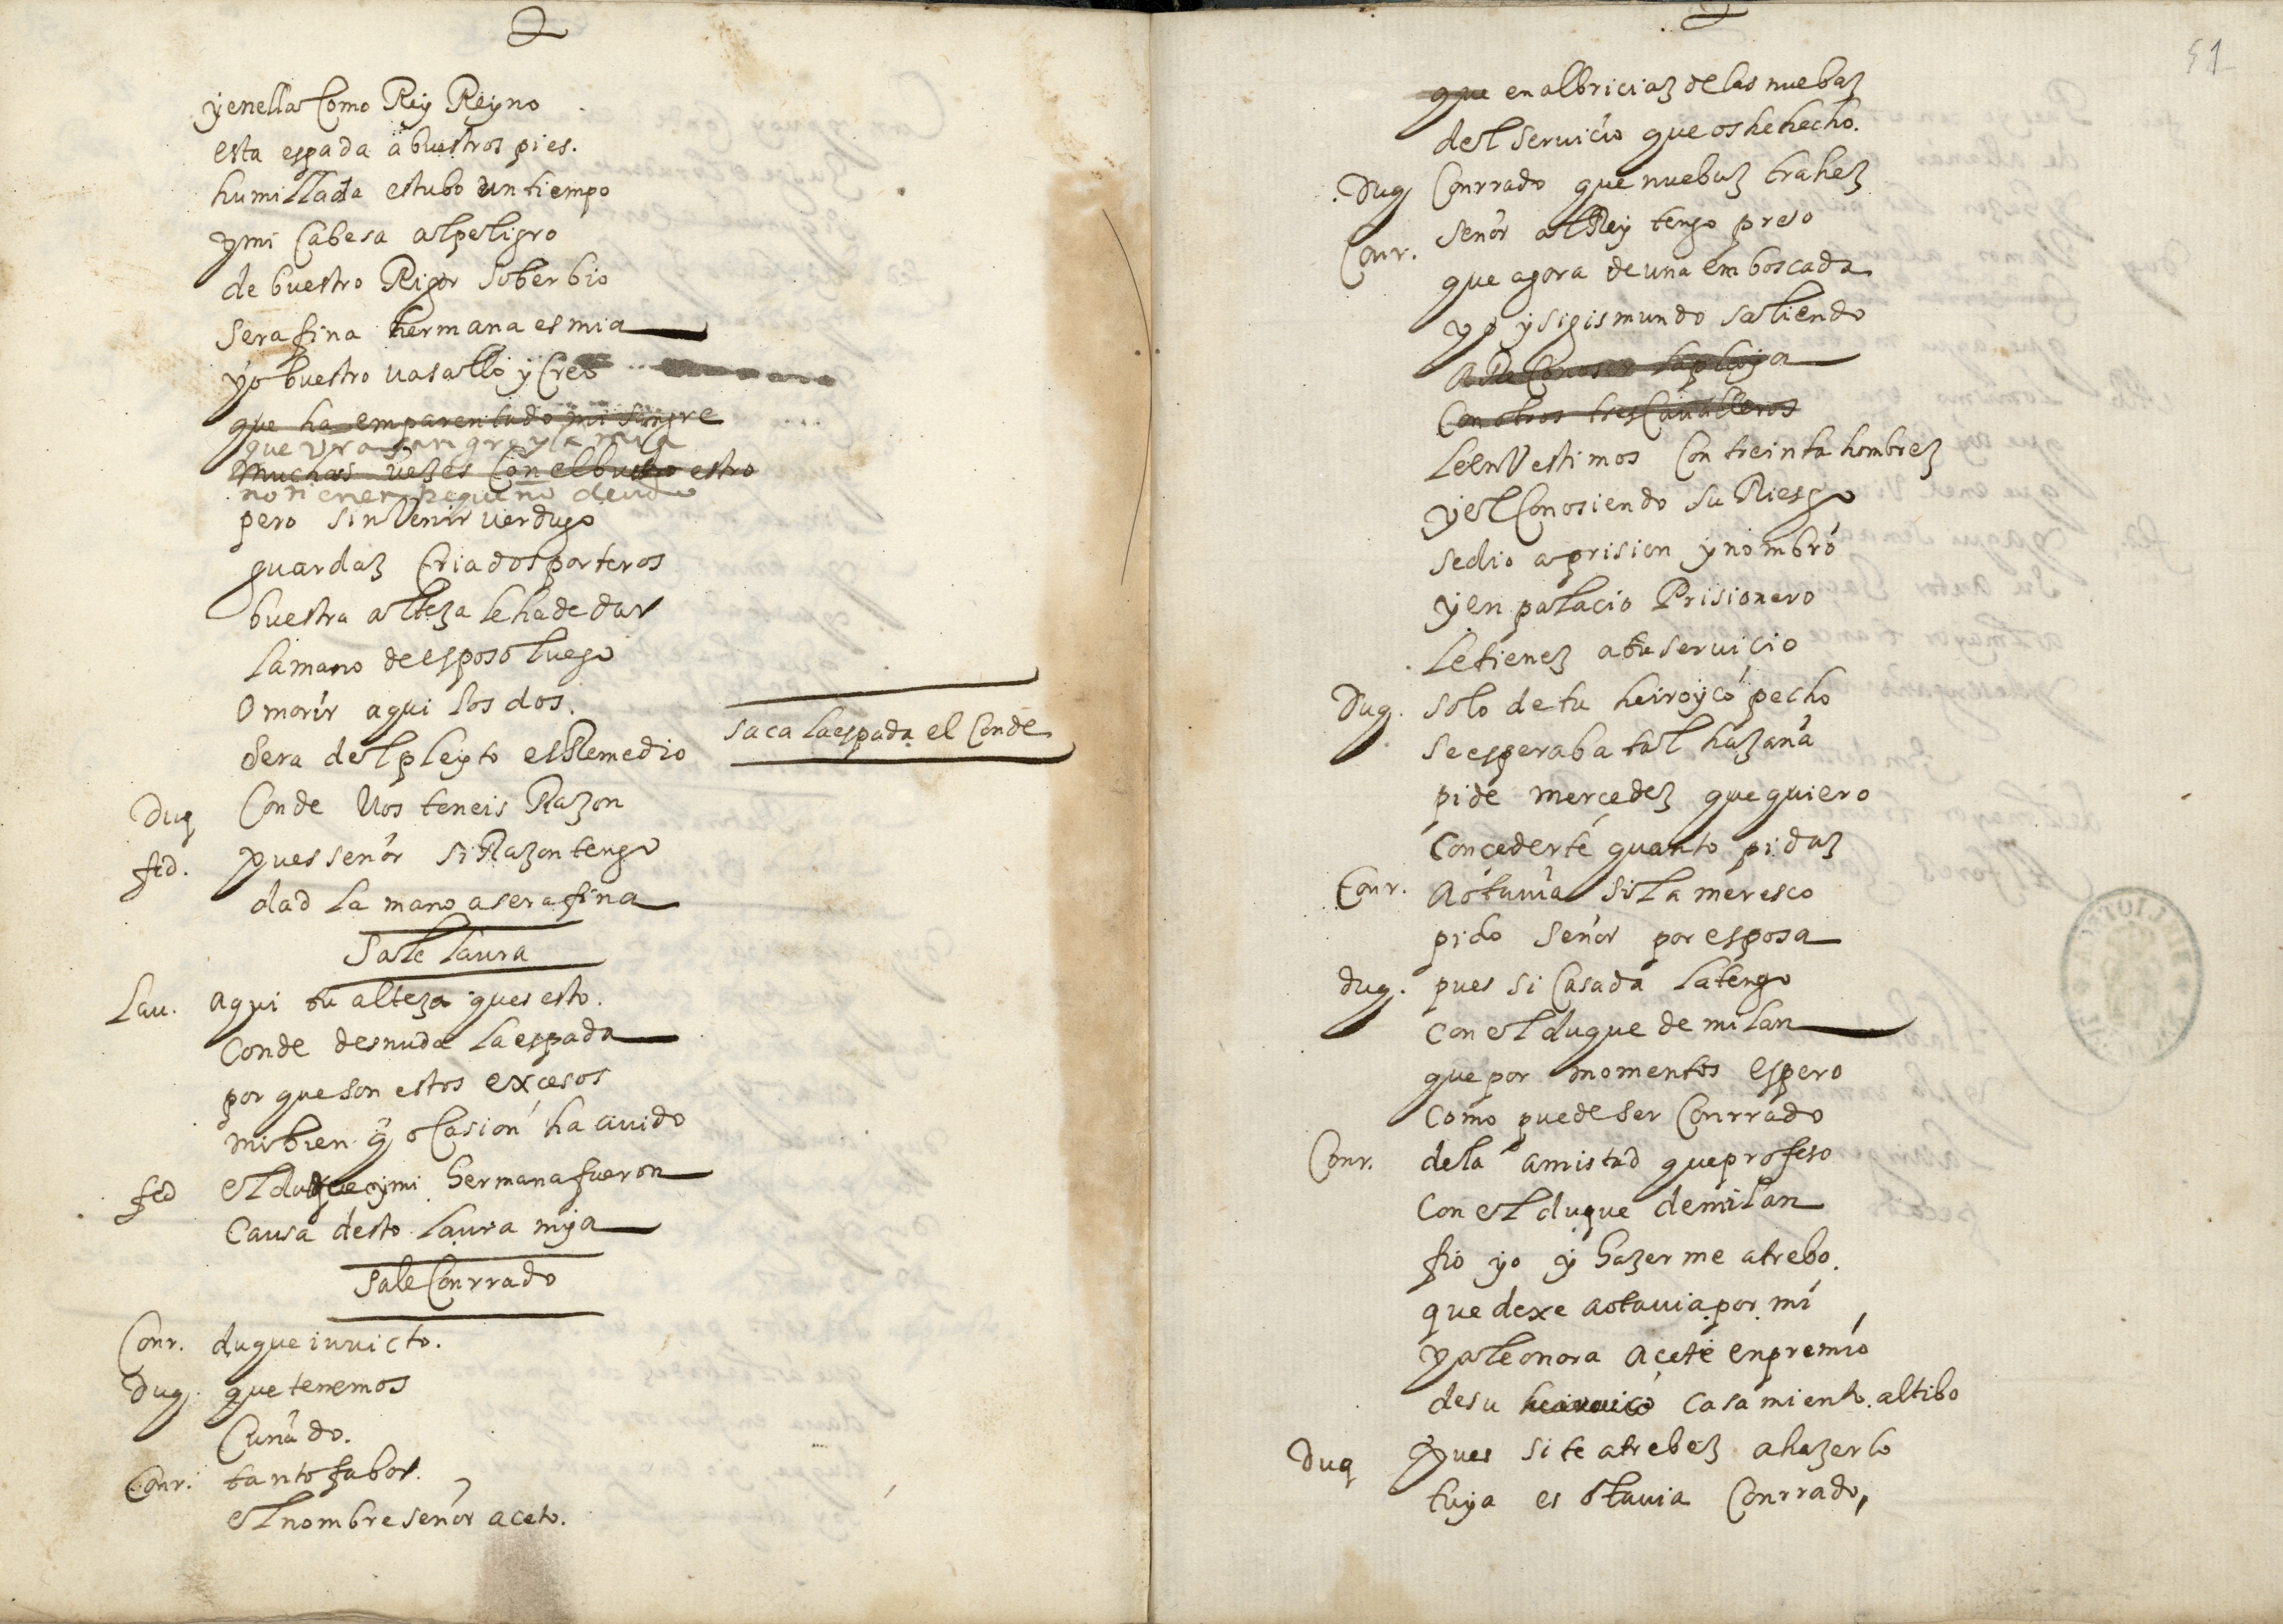 y en ella Como Rey Reyno
esta espada a buestros pies.
humillada estubo un tiempo
y mi Cabesa al peligro
de buestro Rigor soberbio
serafina hermana es mia
yo buestro uasallo y Creo
que ha emparentado mi sangre
que vra sangre y la mia
muchas uezes Con el buestro estro
no tienen pequeño deudo
pero sin Venir uerdugo
guardaz Criados porteros
buestra alteza le ha de dar
la mano de esposo luego
O morir aqui los dos.
saca la espada el Conde
sera del pleyto el Remedio
Duq Conde Vos teneis Razon
fed. pues señor si Razon tengo
dad la mano a serafina
Sale laura
Lau. aqui tu alteza ques esto.
Conde desnuda la espada
por que son estos excesos
mi bien q̃ oCasion ha auido
fed el duque y mi hermana fueron
Causa desto laura mya
sale Conrrado
Conr. duque inuicto.
Duq. que tenemos
Cuñado.
Conr. tanto fabor.
el nombre señor aceto.
51
que en albriciaz de las nuebaz
del seruicio que os he hecho.
Duq Conrrado que nuebaz trahez
Conr. señor al Rey tengo preso
que agora de una emboscada
yo y sigismundo saliendo
a ReConoser la playa
Con otros tres Caualleros
le enVestimos Con treinta hombrez
y el Conosiendo su Riesgo
se dio a prision y nombró
y en palacio Prisionero
le tienez a tu seruicio
Duq. solo de tu heiroyco pecho
se esperaba tal hazaña
pide mercedez que quiero
Concederte quanto pidaz
Conr. a otauia si la meresco
pido señor por esposa
duq. pues si Casada la tengo
con el duque de milan
que por momentos espero
como puede ser Conrrado
Conr. de la amistad que profeso
Con el duque de milan
fio yo y hazer me atrebo.
que dexe a otauia por mi
y a leonora acete en premio
de su casamiento. altibo
Duq pues si te atrebez a hazerlo
tuya es otauia Conrrado,